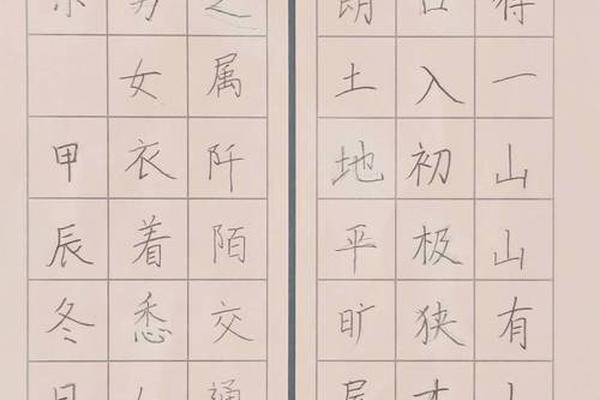 得一山山有小
口入初极狭才
朗土地平旷屋
之属阡陌交通
男女衣着悉
甲辰冬月